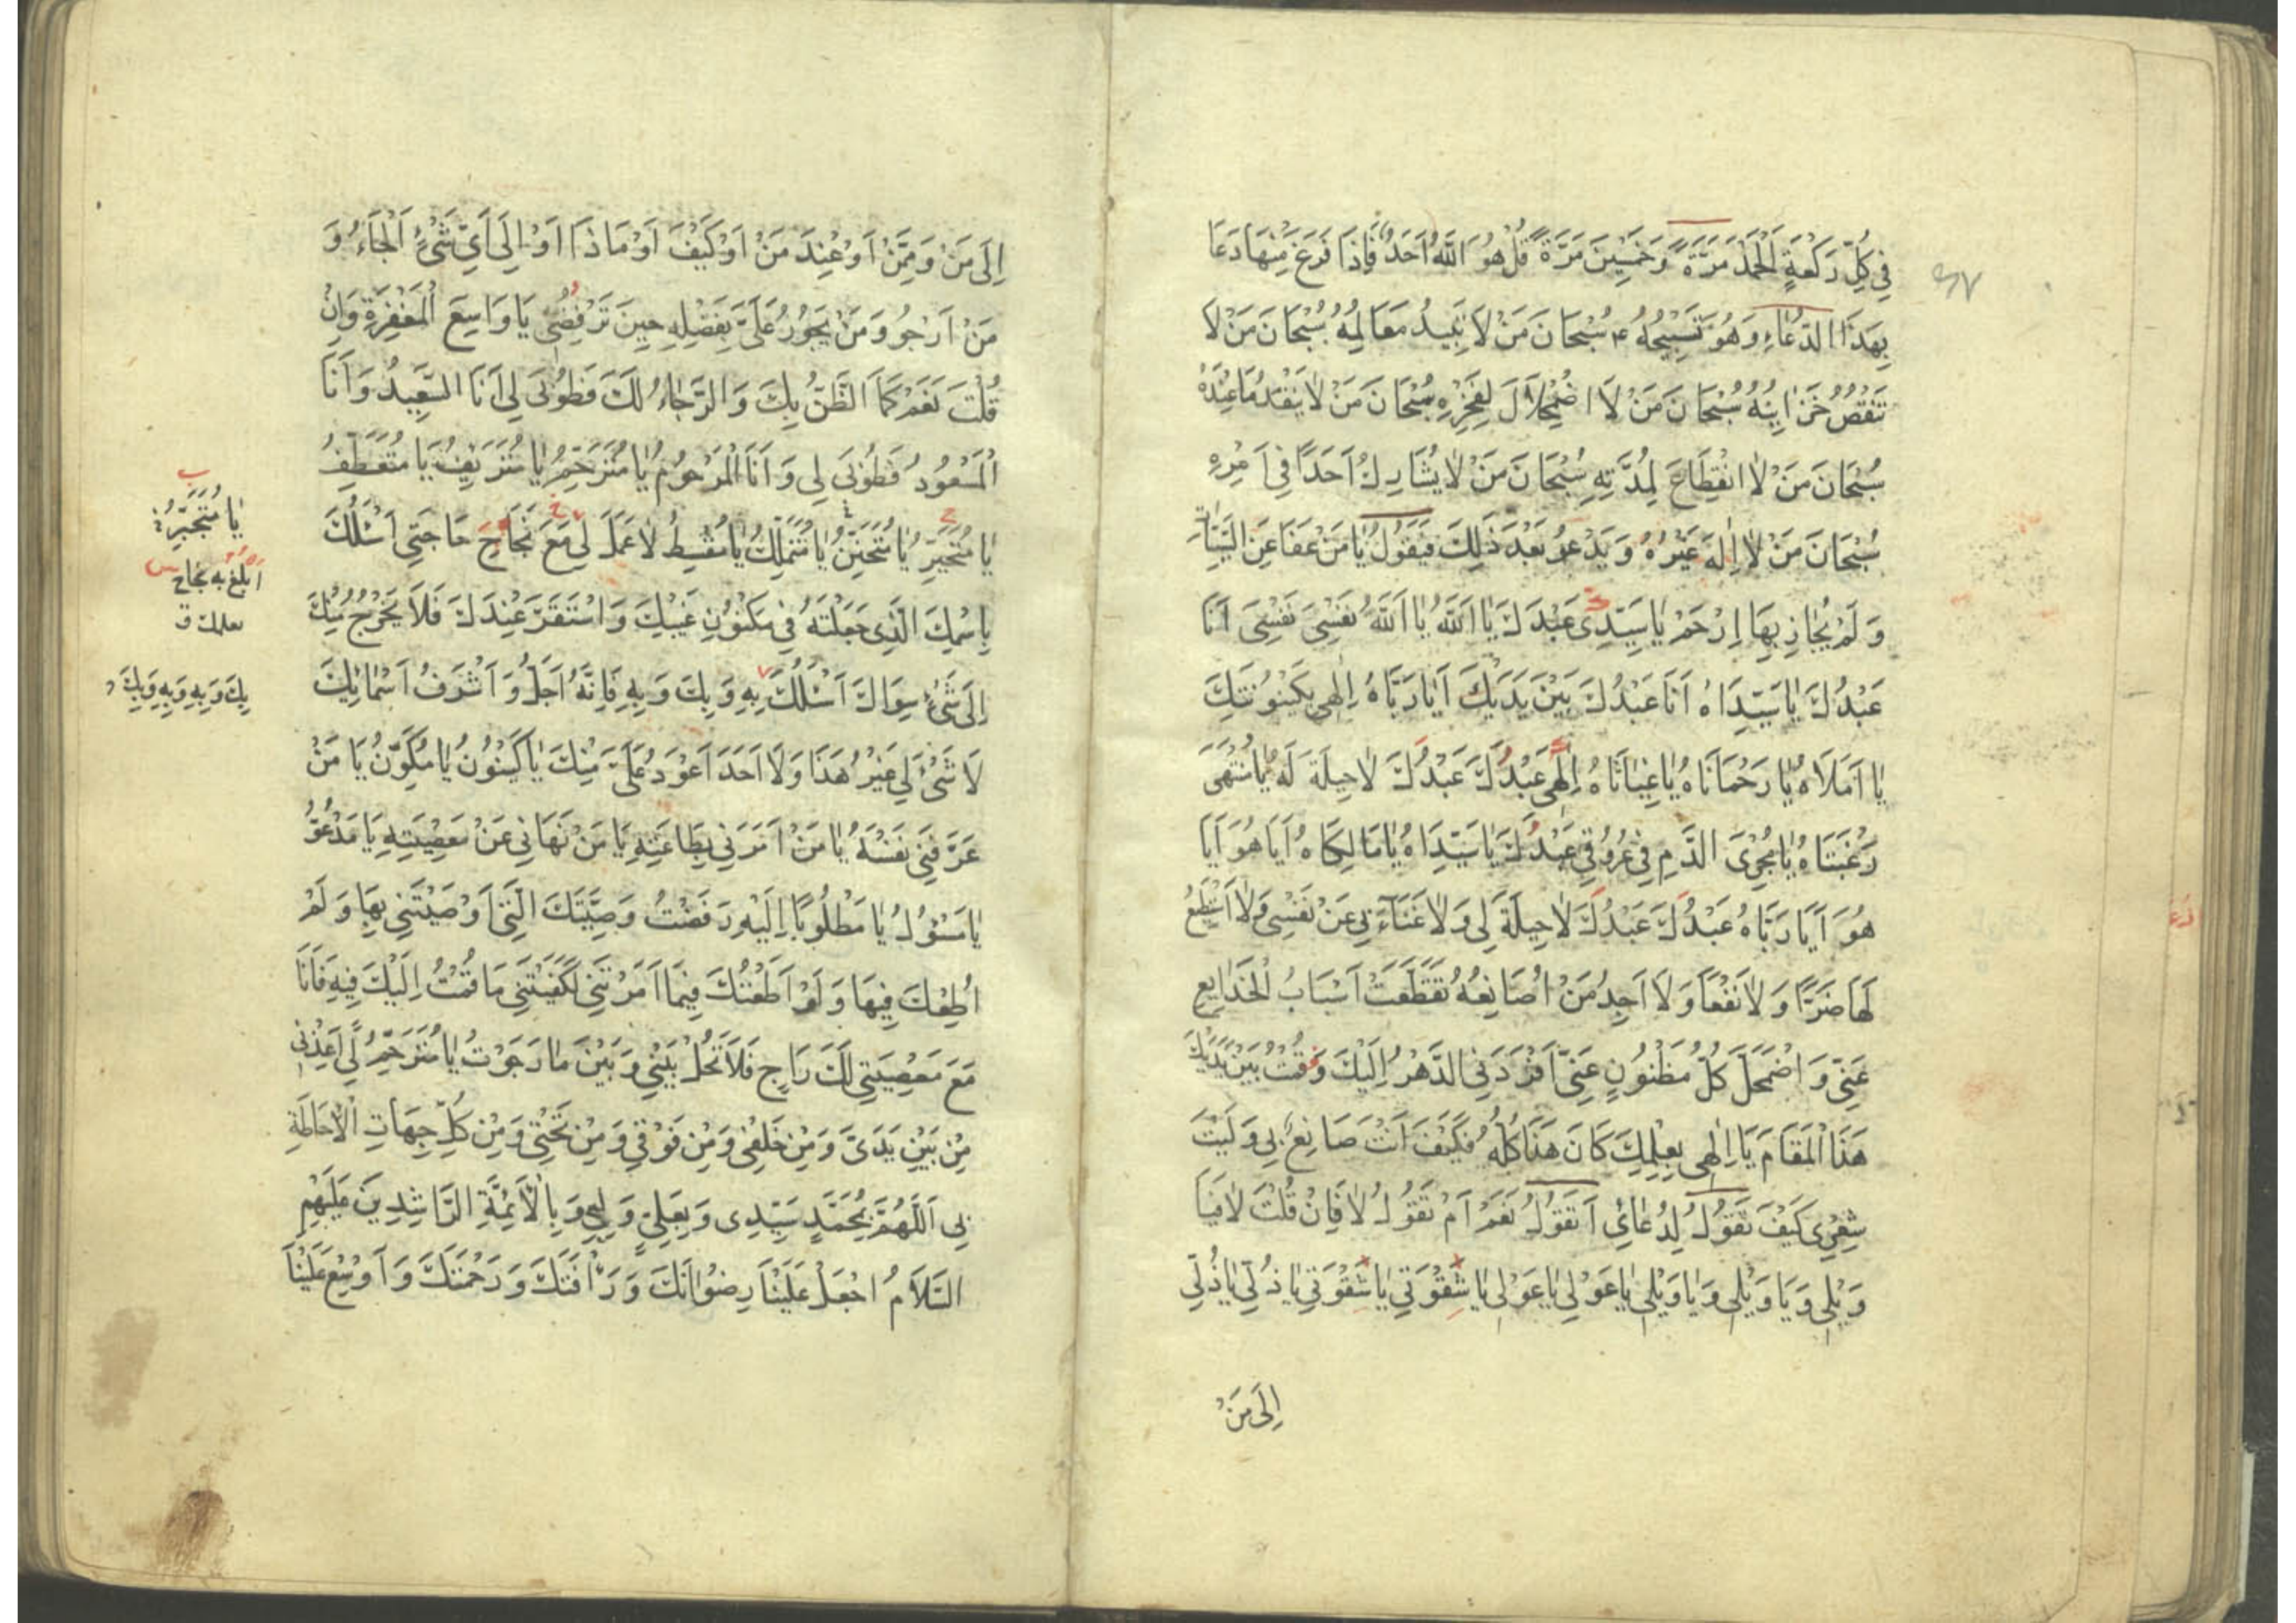 فِي كُلِّ رَكْعَةٍ اَلْحَمْدَ مَرَّةً وَخَمْسِينَ مَرَّةً قُلْ هُوَ اللّٰهُ اَحَدٌ فَاِذَا فَرَغَ مِنْهَا دَعَا
بِهَذَا الدُّعَاءِ وَهُوَ تَسْبِيحُهُ ع سُبْحَانَ مَنْ لَا تَبِيدُ مَعَالِمُهُ سُبْحَانَ مَنْ لَا
تَنْقُصُ خَزَايِنُهُ سُبْحَانَ مَنْ لَا اضْمِحْلَالَ لِفَخْرِهِ سُبْحَانَ مَنْ لَا يَنْفَدُ مَا عِنْدَهُ
سُبْحَانَ مَنْ لَا انْقِطَاعَ لِمُدَّتِهِ سُبْحَانَ مَنْ لَا يُشَارِكُ اَحَدًا فِي اَمْرِهِ
سُبْحَانَ مَنْ لَا اِلٰهَ غَيْرُهُ وَيَدْعُو بَعْدَ ذَلِكَ فَيَقُولُ يَا مَنْ عَفَا عَنِ السَّيِّئَاتِ
وَلَمْ يُجَازِ بِهَا اِرْحَمْ يَا سَيِّدِي عَبْدَكَ يَا اَللّٰهُ يَا اَللّٰهُ نَفْسِيَ نَفْسِيَ اَنَا
عَبْدُكَ يَا سَيِّدَاهُ اَنَا عَبْدُكَ بَيْنَ يَدَيْكَ اَيَا رَبَّاهُ اِلٰهِي بِكَيْنُونَتِكَ
يَا اَمَلَاهُ يَا رَحْمَانَاهُ يَا غِيَاثَاهُ اِلٰهِي عَبْدُكَ عَبْدُكَ لَا حِيلَةَ لَهُ يَا مُنْتَهَى
رَغْبَتَاهُ يَا مُجْرِيَ الدَّمِ فِي عُرُوقِي عَبْدُكَ يَا سَيِّدَاهُ يَا مَالِكَاهُ اَيَا هُوَ اَيَا
هُوَ اَيَا رَبَّاهُ عَبْدُكَ عَبْدُكَ لَا حِيلَةَ لِي وَلَا غَنَاءَ بِي عَنْ نَفْسِي وَلَا اَسْتَطِيعُ
لَهَا ضَرًّا وَلَا نَفْعًا وَلَا اَجِدُ مَنْ اُصَانِعُهُ تَقَطَّعَتْ اَسْبَابُ الْخَدَايِعِ
عَنِّي وَاضْمَحَلَّ كُلُّ مَظْنُونٍ عَنِّي اَفْرَدَنِي الدَّهْرُ اِلَيْكَ وَقُمْتُ بَيْنَ يَدَيْكَ
هَذَا الْمَقَامَ يَا اِلٰهِي بِعِلْمِكَ كَانَ هَذَا كُلُّهُ فَكَيْفَ اَنْتَ صَانِعٌ بِي وَلَيْتَ
شِعْرِي كَيْفَ تَقُولُ لِدُعَائِي اَتَقُولُ نَعَمْ اَمْ تَقُولُ لَا فَاِنْ قُلْتَ لَا فَيَا
وَيْلِي وَيَا وَيْلِي وَيَا وَيْلِي يَا عَوْلِي يَا عَوْلِي يَا شِقْوَتِي يَا شِقْوَتِي يَا ذُلِّي يَا ذُلِّي
اِلَى مَنْ
اِلَى مَنْ وَمِمَّنْ اَوْ عِنْدَ مَنْ اَوْ كَيْفَ اَوْ مَا ذَا اَوْ اِلَى اَيِّ شَيْءٍ اَلْجَاءُ وَ
مَنْ اَرْجُو وَمَنْ يَجُودُ عَلَيَّ بِفَضْلِهِ حِينَ تَرْفُضُنِي يَا وَاسِعَ الْمَغْفِرَةِ وَاِنْ
قُلْتَ نَعَمْ كَمَا الظَّنُّ بِكَ وَالرَّجَاءُ لَكَ فَطُوبَى لِي اَنَا السَّعِيدُ وَاَنَا
الْمَسْعُودُ فَطُوبَى لِي وَاَنَا الْمَرْحُومُ يَا مُتَرَحِّمُ يَا مُتَرَيِّفُ يَا مُتَعَطِّفُ
يَا مُتَجَبِّرُ يَا مُتَحَنِّنُ يَا مُتَمَلِّكُ يَا مُقْسِطُ لَا عَمَلَ لِي مَعَ نَجَاحِ حَاجَتِي اَسْئَلُكَ
بِاسْمِكَ الَّذِي جَعَلْتَهُ فِي مَكْنُونِ غَيْبِكَ وَاسْتَقَرَّ عِنْدَكَ فَلَا يَخْرُجُ مِنْكَ
اِلَى شَيْءٍ سِوَاكَ اَسْئَلُكَ بِهِ وَبِكَ وَبِهِ فَاِنَّهُ اَجَلُّ وَاَشْرَفُ اَسْمَائِكَ
لَا شَيْءَ لِي غَيْرُ هَذَا وَلَا اَحَدَ اَعْوَدُ عَلَيَّ مِنْكَ يَا كَيْنُونُ يَا مُكَوِّنُ يَا مَنْ
عَرَّفَنِي نَفْسَهُ يَا مَنْ اَمَرَنِي بِطَاعَتِهِ يَا مَنْ نَهَانِي عَنْ مَعْصِيَتِهِ يَا مَدْعُوُّ
يَا مَسْؤُلُ يَا مَطْلُوبًا اِلَيْهِ رَفَضْتُ وَصِيَّتَكَ الَّتِي اَوْصَيْتَنِي بِهَا وَلَمْ
اُطِعْكَ فِيهَا وَلَوْ اَطَعْتُكَ فِيمَا اَمَرْتَنِي لَكَفَيْتَنِي مَا قُمْتُ اِلَيْكَ فِيهِ فَاَنَا
مَعَ مَعْصِيَتِي لَكَ رَاجٍ فَلَا تَحُلْ بَيْنِي وَبَيْنَ مَا رَجَوْتُ يَا مُتَرَحِّمُ لِي اَعِذْنِي
مِنْ بَيْنِ يَدَيَّ وَمِنْ خَلْفِي وَمِنْ فَوْقِي وَمِنْ تَحْتِي وَمِنْ كُلِّ جِهَاتِ الْاِحَاطَةِ
بِي اَللّٰهُمَّ بِمُحَمَّدٍ سَيِّدِي وَبِعَلِيٍّ وَلِيِّي وَبِالْاَئِمَّةِ الرَّاشِدِينَ عَلَيْهِمُ
السَّلَامُ اجْعَلْ عَلَيْنَا رِضْوَانَكَ وَرَأْفَتَكَ وَرَحْمَتَكَ وَاَوْسِعْ عَلَيْنَا
يَا مُتَجَبِّرُ
اَبْلُغُ بِهِ نَجَاحَ
بِكَ وَبِهِ وَبِهِ وَبِكَ